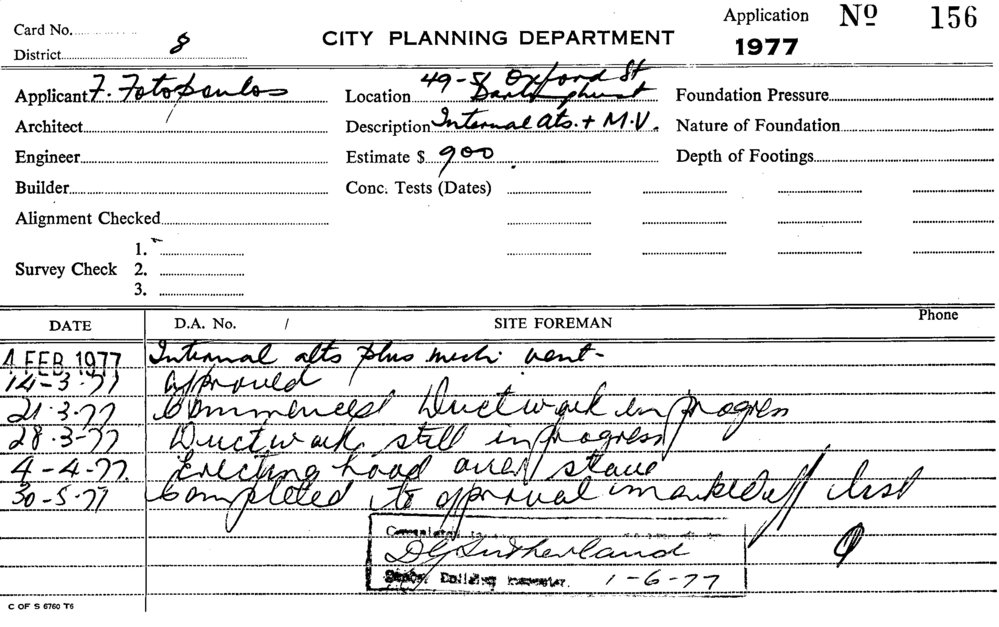 Card No.
District 8
CITY PLANNING DEPARTMENT
Application Nº 156
1977
Applicant F. Fotopoulos
Location 49-51 Oxford St
Darlinghurst
Foundation Pressure
Architect
Description Internal Alts. + M.V.
Nature of Foundation
Engineer
Estimate $ 900
Depth of Footings
Builder
Conc. Tests (Dates)
Alignment Checked
Survey Check
1.
2.
3.
DATE D.A. No. / SITE FOREMAN Phone
4 FEB 1977 Internal alts plus mech. vent-
14-3-77 Approved
21.3.77 Commenced Ductwork in progress
28.3-77 Ductwork still in progress
4-4-77. Erecting hood over stove
30-5-77 Completed to approval marked off list
DG Sutherland
Building Inspector. 1-6-77
C OF S 6760 T6